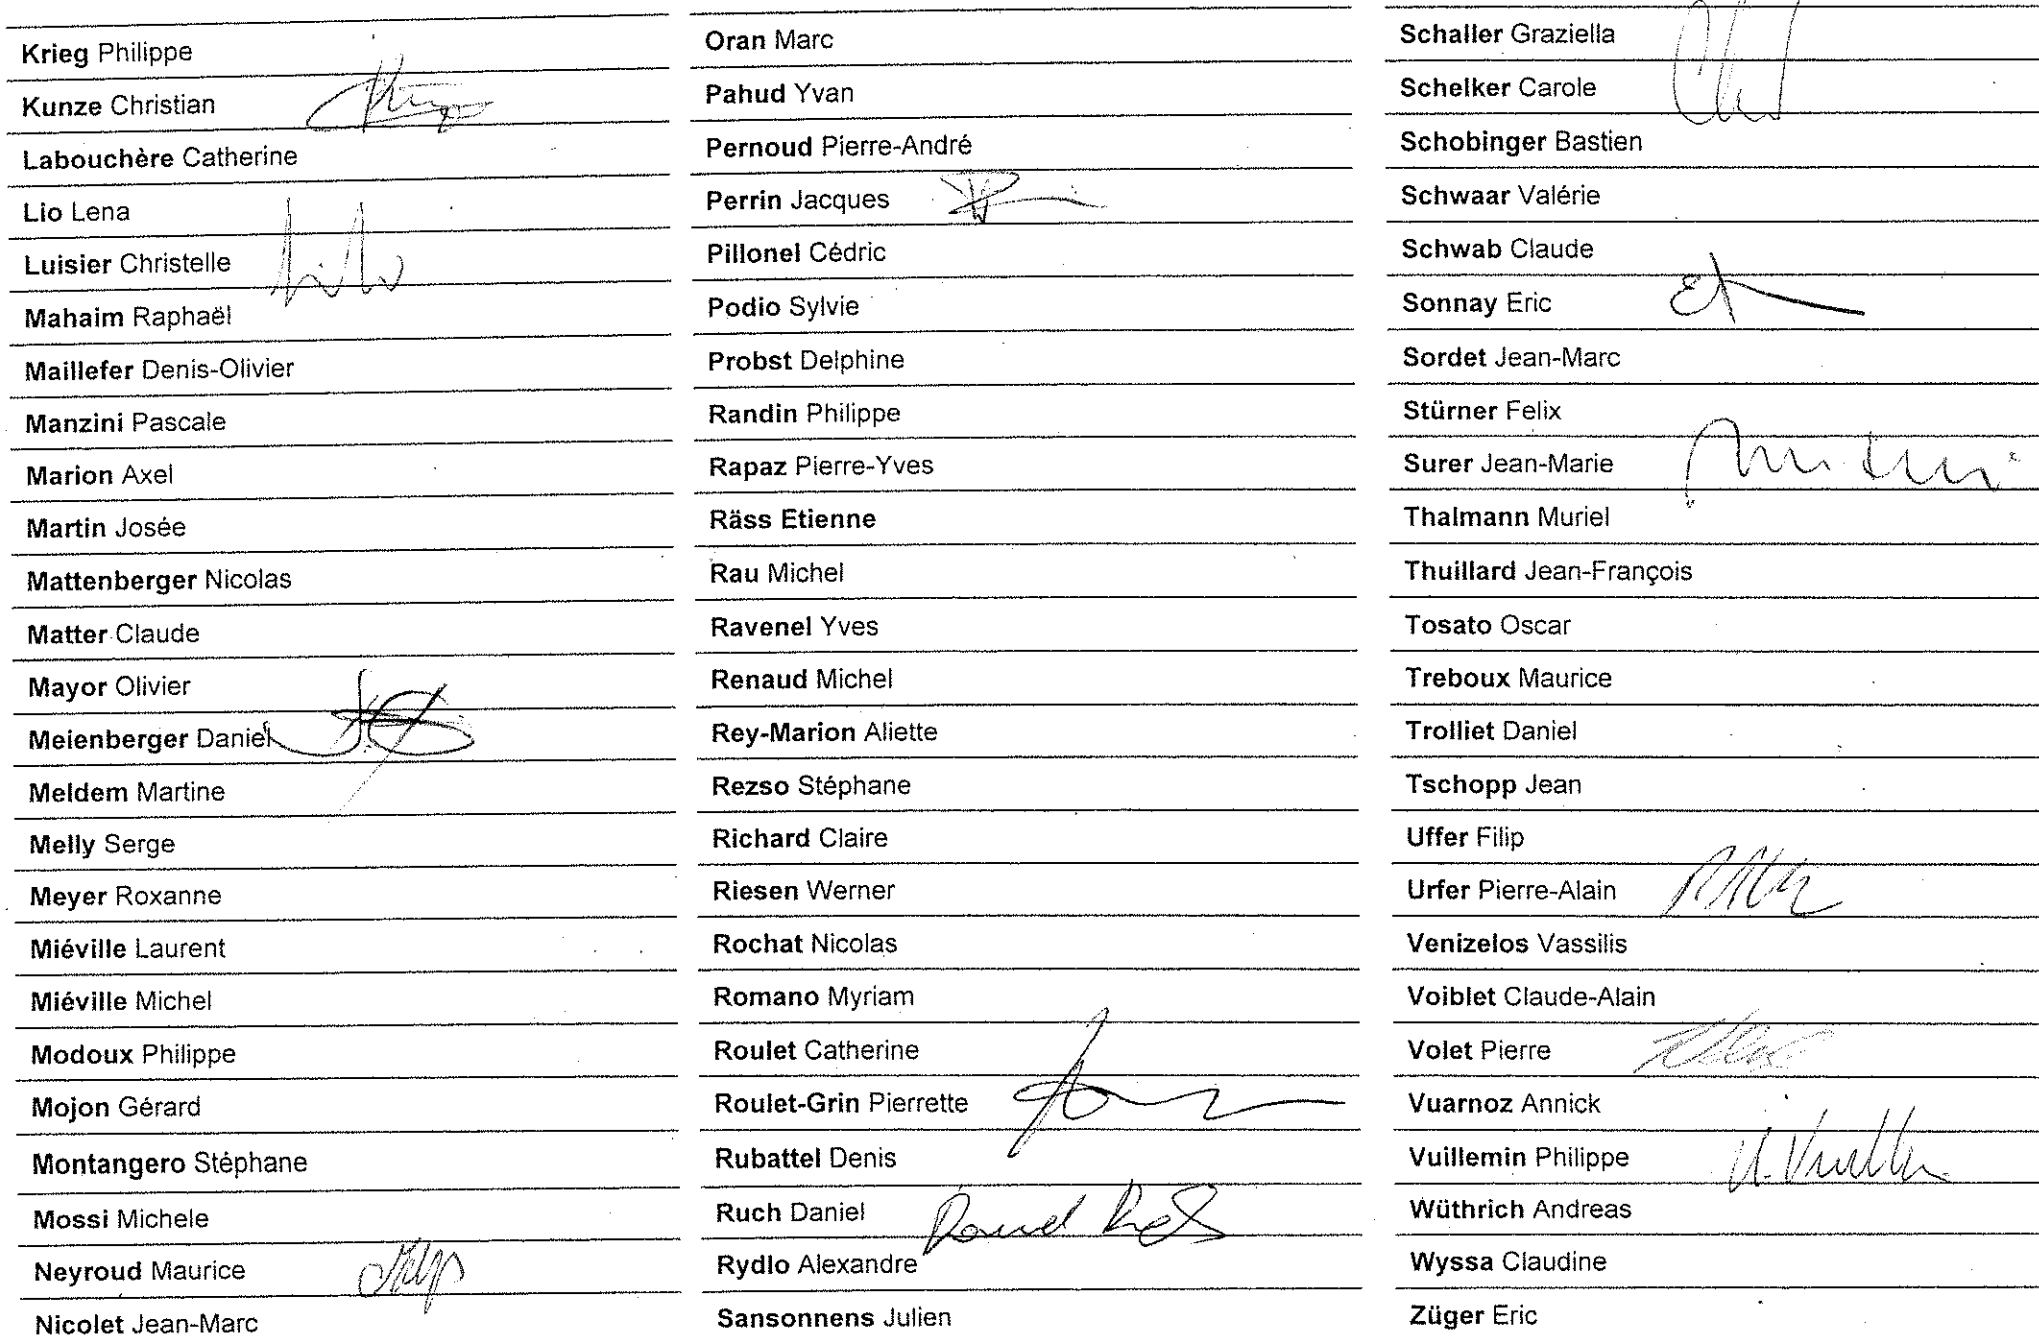 Krieg Philippe
Kunze Christian
Labouchère Catherine
Lio Lena
Luisier Christelle
Mahaim Raphaël
Maillefer Denis-Olivier
Manzini Pascale
Marion Axel
Martin Josée
Mattenberger Nicolas
Matter Claude
Mayor Olivier
Meienberger Daniel
Meldem Martine
Melly Serge
Meyer Roxanne
Miéville Laurent
Miéville Michel
Modoux Philippe
Mojon Gérard
Montangero Stéphane
Mossi Michele
Neyroud Maurice
Nicolet Jean-Marc
Oran Marc
Pahud Yvan
Pernoud Pierre-André
Perrin Jacques
Pillonel Cédric
Podio Sylvie
Probst Delphine
Randin Philippe
Rapaz Pierre-Yves
Räss Etienne
Rau Michel
Ravenel Yves
Renaud Michel
Rey-Marion Aliette
Rezso Stéphane
Richard Claire
Riesen Werner
Rochat Nicolas
Romano Myriam
Roulet Catherine
Roulet-Grin Pierrette
Rubattel Denis
Ruch Daniel
Rydlo Alexandre
Sansonnens Julien
Schaller Graziella
Schelker Carole
Schobinger Bastien
Schwaar Valérie
Schwab Claude
Sonnay Eric
Sordet Jean-Marc
Stürner Felix
Surer Jean-Marie
Thalmann Muriel
Thuillard Jean-François
Tosato Oscar
Treboux Maurice
Trolliet Daniel
Tschopp Jean
Uffer Filip
Urfer Pierre-Alain
Venizelos Vassilis
Voiblet Claude-Alain
Volet Pierre
Vuarnoz Annick
Vuillemin Philippe
Wüthrich Andreas
Wyssa Claudine
Züger Eric